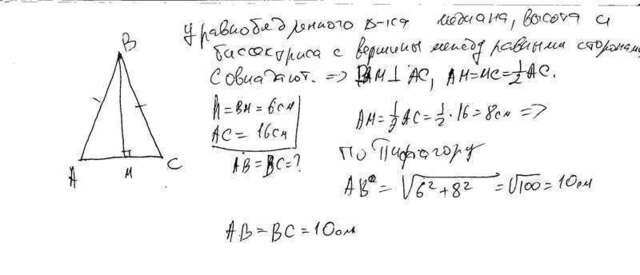 У равнобедренного в-ка медиана, высота и
биссектриса с вершины между равными сторонами
Совпадают. => BM⊥AC, AM=MC=½AC.
h=BM=6см
AC=16см
AB=BC=?
AM=½AC=½·16=8см =>
По Пифагору
AB=√6²+8²=√100=10см
AB=BC=10см
B
A
M
C